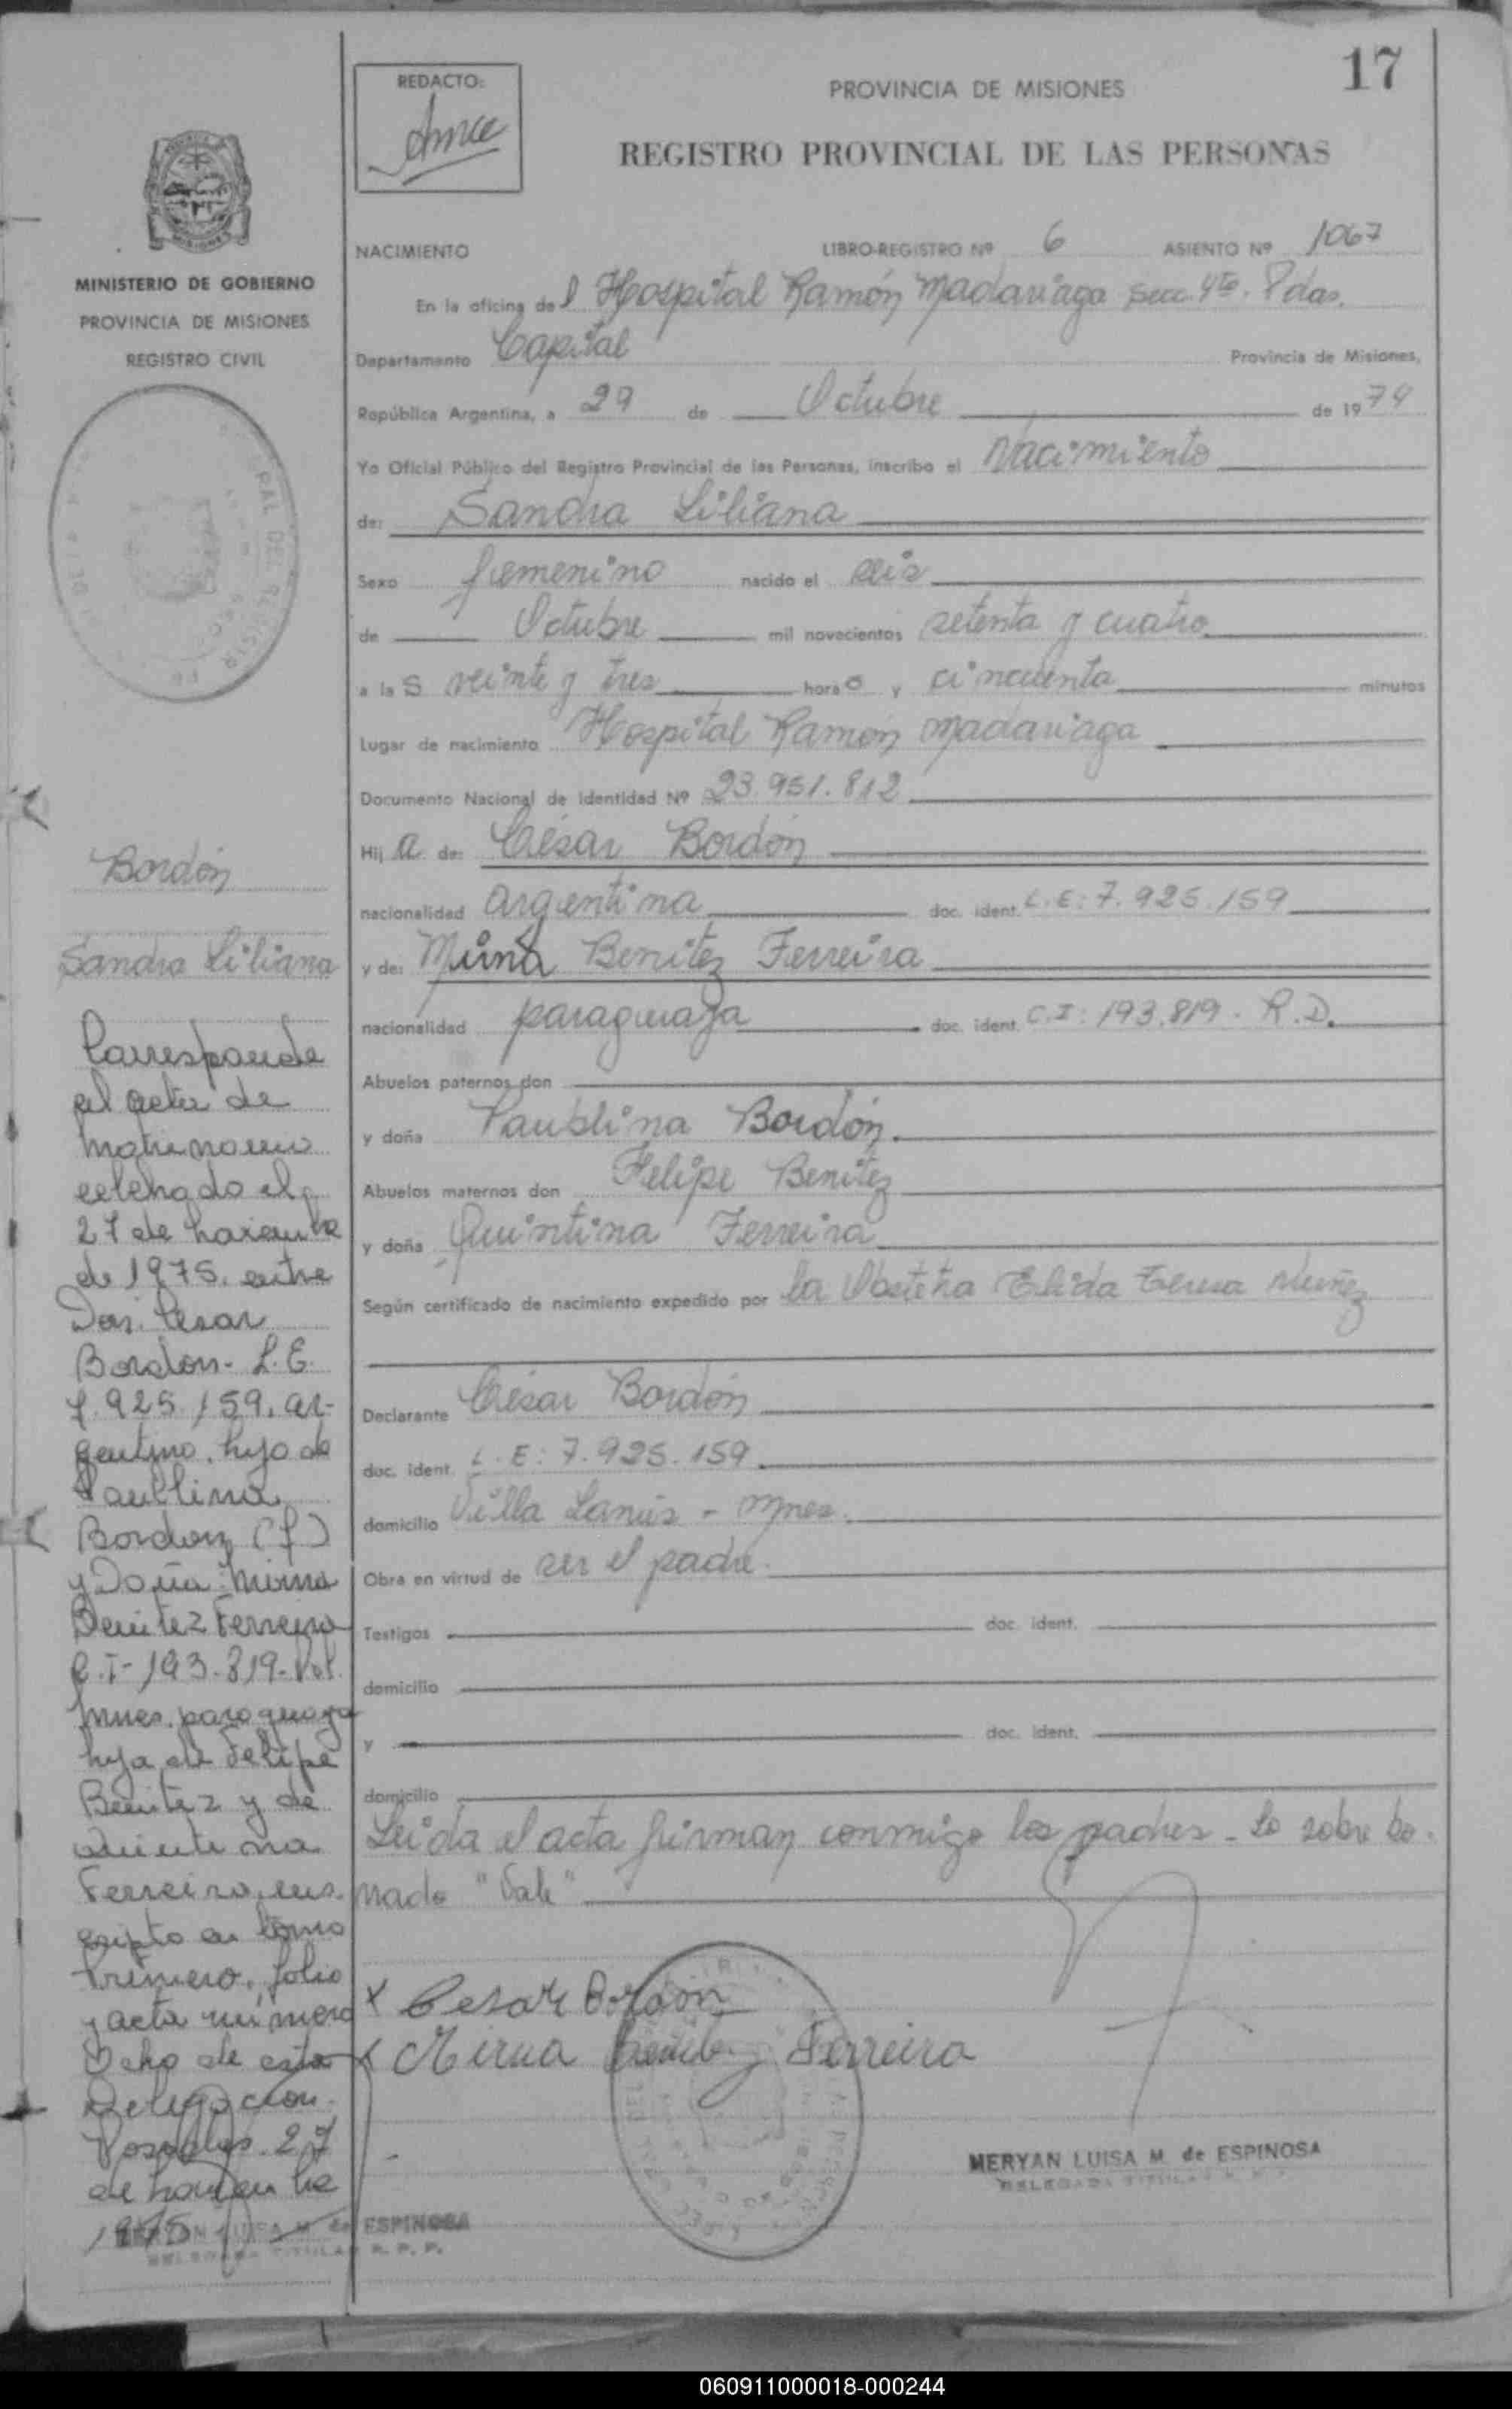 17
REDACTO:
PROVINCIA DE MISIONES
REGISTRO PROVINCIAL DE LAS PERSONAS
NACIMIENTO LIBRO-REGISTRO Nº 6 ASIENTO Nº 1067
En la oficina del Hospital Ramón Madariaga Secc. 4ta. Pdas.
Departamento Capital Provincia de Misiones,
República Argentina, a 29 de Octubre de 1974
Yo Oficial Público del Registro Provincial de las Personas, inscribo el Nacimiento
de: Sandra Liliana
Sexo femenino nacido el seis
de Octubre mil novecientos setenta y cuatro
a las veinte y tres horas y cincuenta minutos
Lugar de nacimiento Hospital Ramón Madariaga
Documento Nacional de Identidad Nº 23.951.812
Hija de: César Bordón
nacionalidad argentina doc. ident. L.E: 7.925.159
y de: Mirna Benitez Ferreira
nacionalidad paraguaya doc. ident. C.I: 193.819. R.D.
Abuelos paternos don
y doña Paublina Bordón.
Abuelos maternos don Felipe Benitez
y doña Quintina Ferreira
Según certificado de nacimiento expedido por la Obstetra Elida Teresa Nuñez
Declarante César Bordón
doc. ident. L.E: 7.925.159
domicilio Villa Lanús - Mnes.
Obra en virtud de ser el padre.
Testigos doc. ident.
domicilio
y doc. ident.
domicilio
Leida el acta firman conmigo los padres - Lo sobre bo-
rrado "Vale"
x Cesar Bordon
x Mirna Benitez Ferreira
MERYAN LUISA M. de ESPINOSA
DELEGADA TITULAR
MINISTERIO DE GOBIERNO
PROVINCIA DE MISIONES
REGISTRO CIVIL
Bordón
Sandra Liliana
Corresponde
al acta de
matrimonio
celebrado el
27 de
de 1975. entre
Don. Cesar
Bordon - L.E.
7.925.159. ar-
gentino. hijo de
Paublina
Bordon (f)
y Doña: Mirna
Benitez Ferreira
C.I- 193.819- Pol.
Mnes. paraguaya
hija de Felipe
Benitez y de
Quintina
Ferreira, ins-
cripto en tomo
Primero. folio
y acta número
Ocho de esta
Delegación.
Posadas. 27
de
1975
MERYAN LUISA M. de ESPINOSA
DELEGADA TITULAR R. P. P.
060911000018-000244